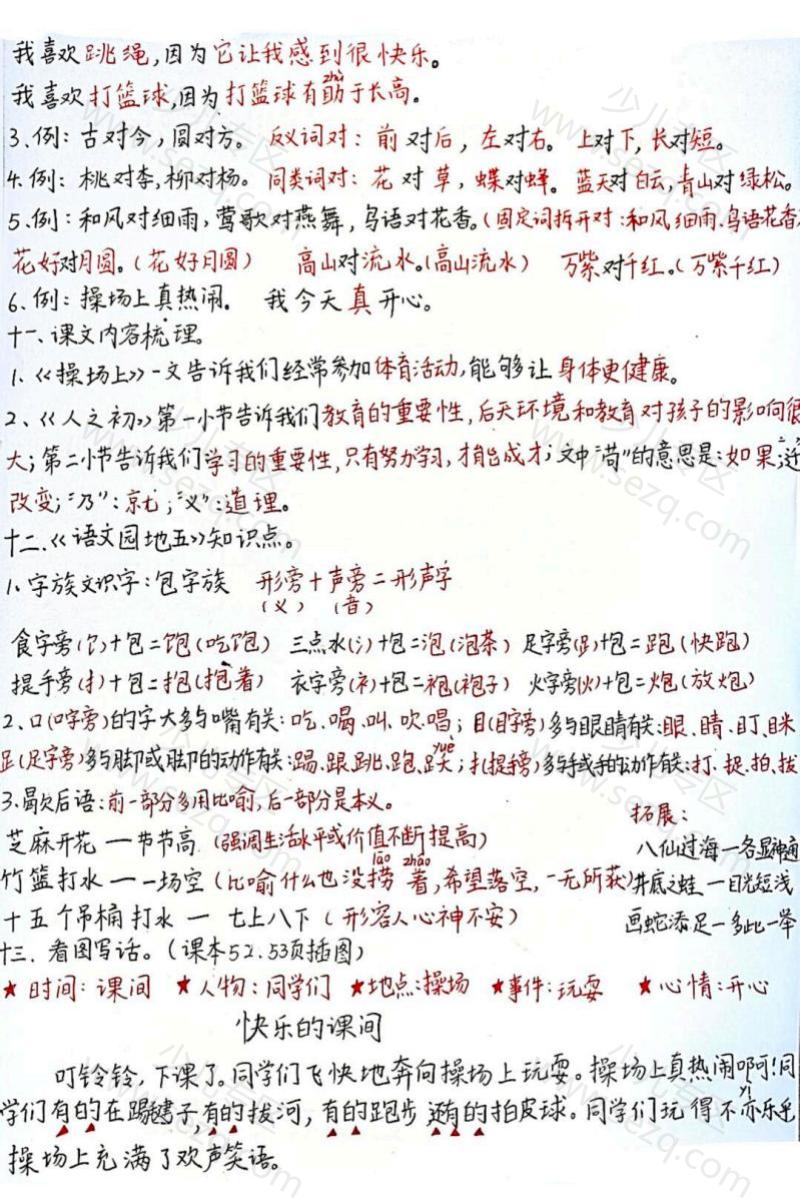 我喜欢跳绳,因为它让我感到很快乐。
zhù
我喜欢打篮球,因为打篮球有助于长高。
3、例：古对今，圆对方。 反义词对：前对后，左对右。 上对下，长对短。
4、例：桃对李,柳对杨。 同类词对：花对草，蝶对蜂。 蓝天对白云,青山对绿松。
5、例：和风对细雨，莺歌对燕舞，鸟语对花香。(固定词拆开对:和风细雨、鸟语花香
花好对月圆。(花好月圆) 高山对流水。(高山流水) 万紫对千红。(万紫千红)
6、例：操场上真热闹。 我今天真开心。
十一、课文内容梳理。
1、《操场上》一文告诉我们经常参加体育活动,能够让身体更健康。
2、《人之初》第一小节告诉我们教育的重要性,后天环境和教育对孩子的影响很
大；第二小节告诉我们学习的重要性,只有努力学习,才能成才；文中"苟"的意思是:如果;迁
改变；"乃"：就；"义":道理。
十二、《语文园地五》知识点。
1、字族文识字：包字族 形旁＋声旁＝形声字
(义) (音)
食字旁(饣)+包=饱(吃饱) 三点水(氵)+包=泡(泡茶) 足字旁(⻊)+包=跑(快跑)
提手旁(扌)+包=抱(抱着) 衣字旁(衤)+包=袍(袍子) 火字旁(火)+包=炮(放炮)
2、口(口字旁)的字大多与嘴有关：吃、喝、叫、吹、唱；目(目字旁)多与眼睛有关:眼、睛、盯、眯
yuè
足(足字旁)多与脚或脚的动作有关:踢、跟、跳、跑、跃；扌(提手旁)多与手或手的动作有关:打、捉、拍、拔
3、歇后语：前一部分多用比喻,后一部分是本义。
拓展：
芝麻开花 一 节节高 (强调生活水平或价值不断提高)
八仙过海一各显神通
lāo zháo
竹篮打水 一 一场空 (比喻什么也没捞着,希望落空,一无所获)
井底之蛙一目光短浅
十五个吊桶打水 一 七上八下 (形容人心神不安)
画蛇添足一多此一举
十三、看图写话。(课本52.53页插图)
★时间：课间 ★人物：同学们 ★地点:操场 ★事件：玩耍 ★心情：开心
快乐的课间
叮铃铃，下课了。同学们飞快地奔向操场上玩耍。操场上真热闹啊!同
yì
学们有的在踢毽子,有的拔河，有的跑步还有的拍皮球。同学们玩得不亦乐乎
操场上充满了欢声笑语。
少儿专区
www.sezq.com